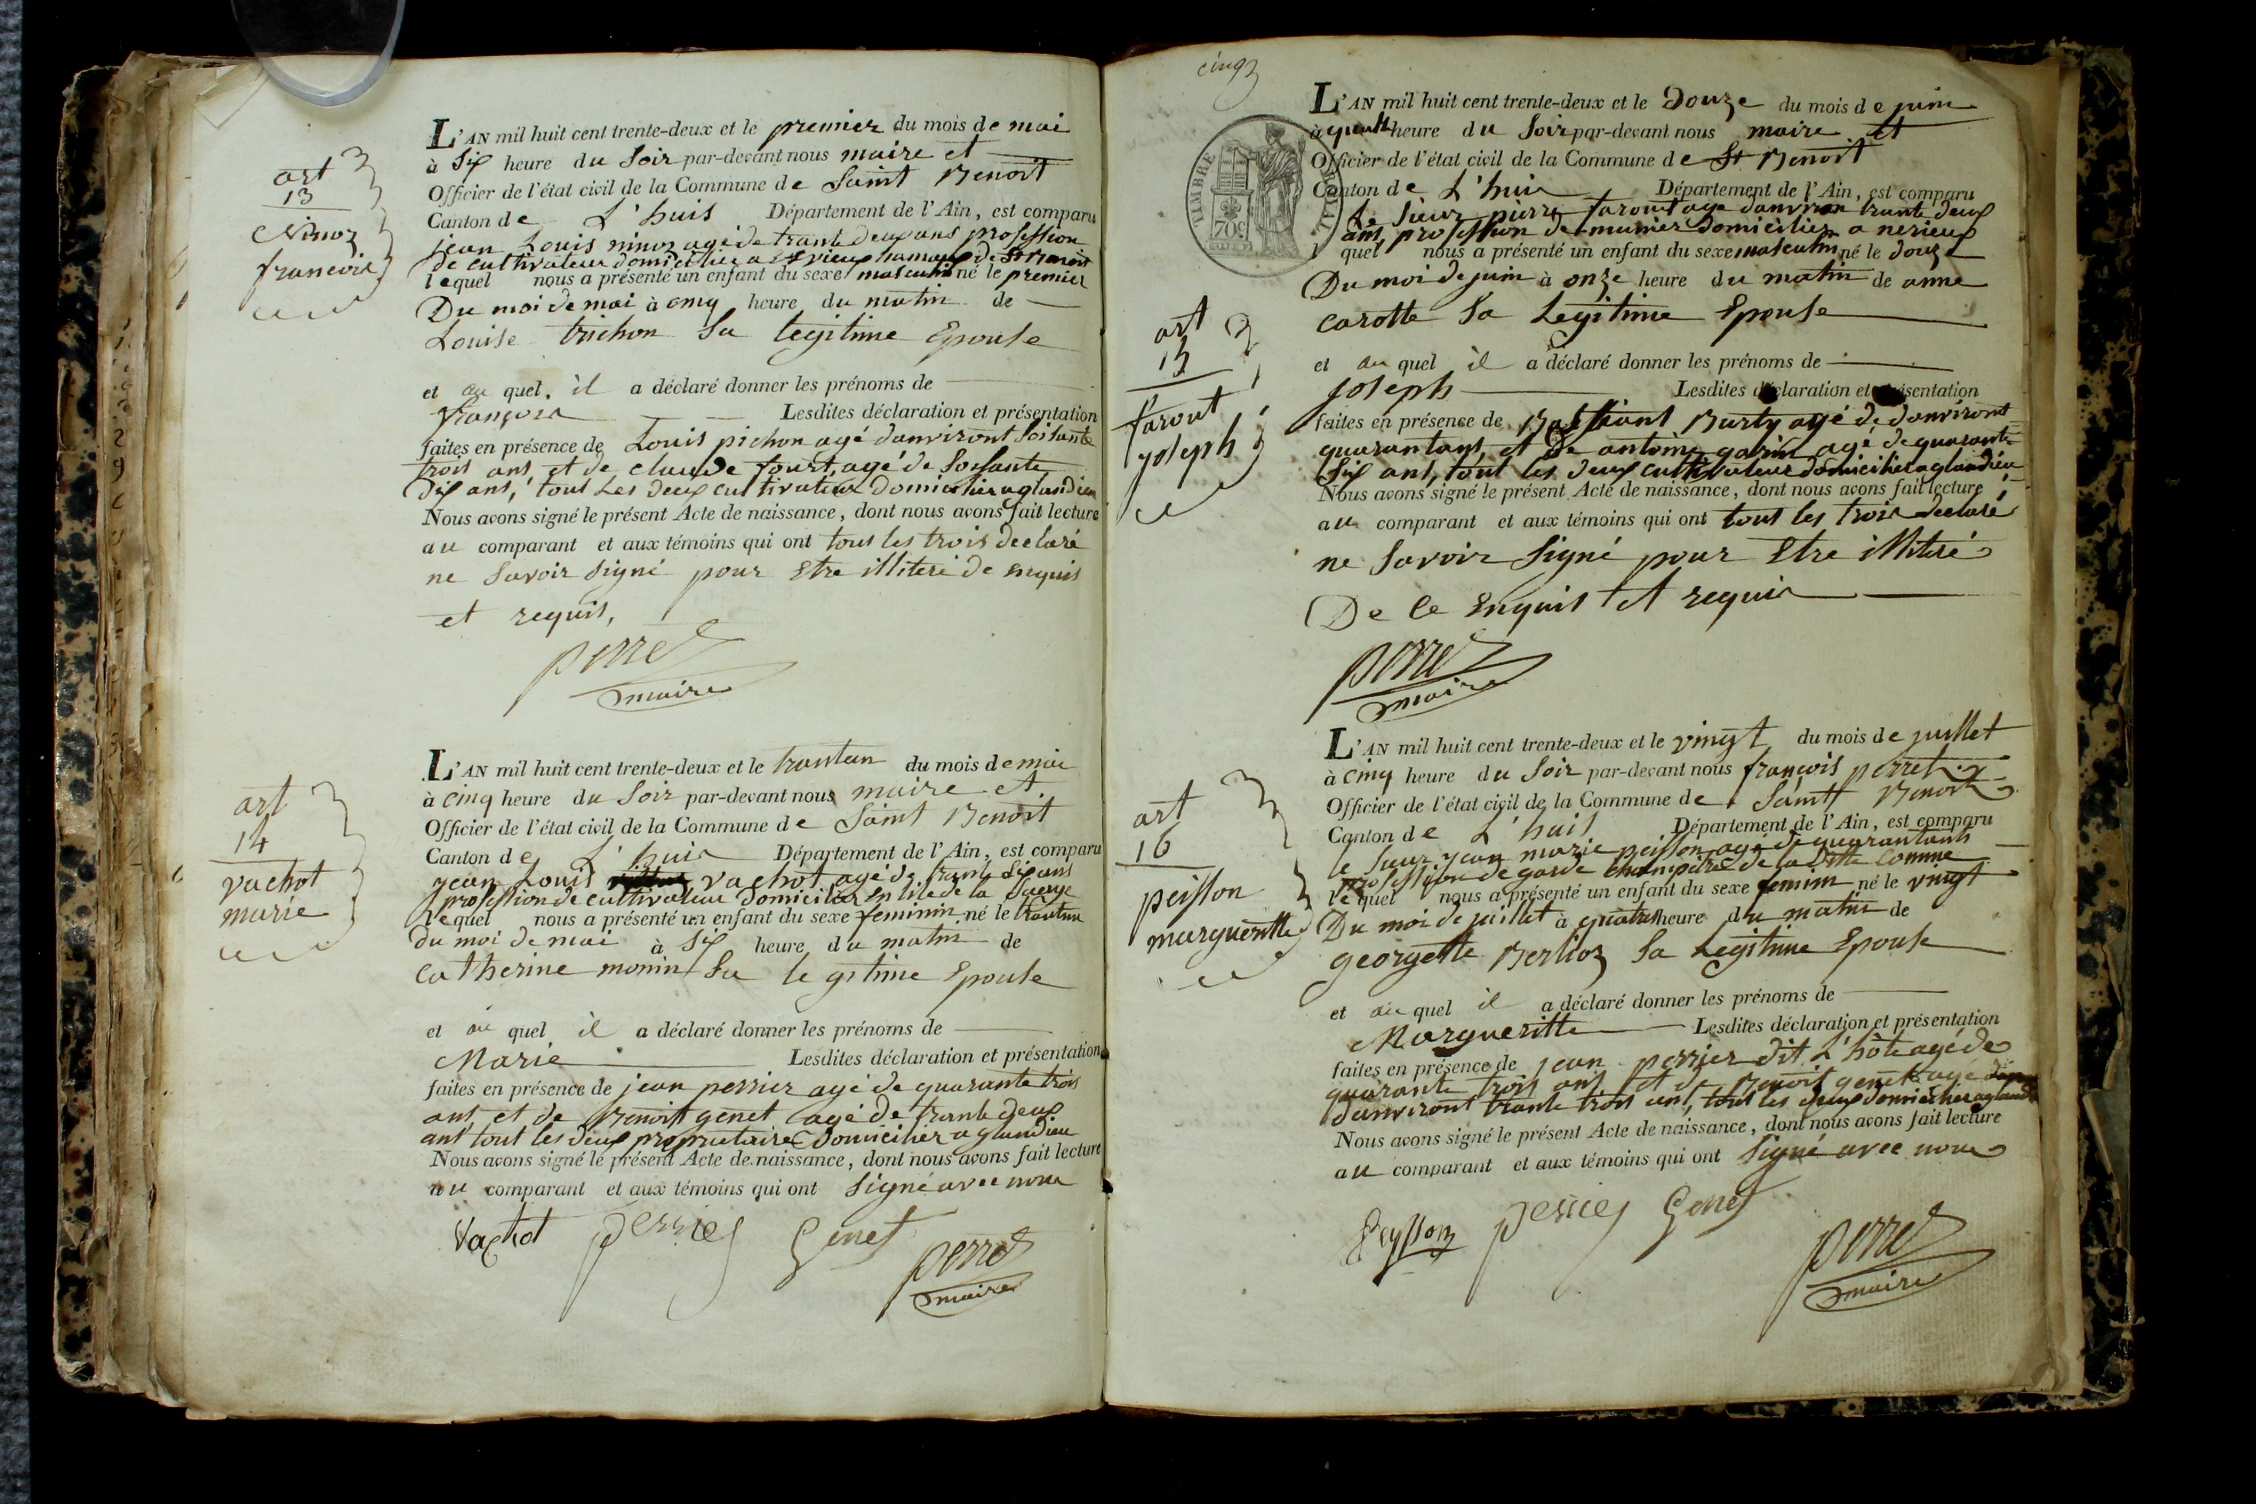 art
13
Ninoz
francois
L'AN mil huit cent trente-deux et le premier du mois de mai
à Six heure du Soir par-devant nous maire et
Officier de l'état civil de la Commune de Saint Benoit
Canton de L'huis Département de l'Ain, est comparu
jean Louis ninoz agé de trante deux ans profession
de cultivateur domicilier a hamaux de St Benoit
lequel nous a présenté un enfant du sexe masculin né le premier
Du moi de mai à cinq heure du matin de
Louise trichon Sa legitime Epouse
et au quel il a déclaré donner les prénoms de
françois Lesdites déclaration et présentation
faites en présence de Louis pichon agé danviront Soisante
trois ans et de claude fourt, agé de Soisante
dix ans, tout Les deux cultivateur domicilier a glandieu
Nous avons signé le présent Acte de naissance, dont nous avons fait lecture
au comparant et aux témoins qui ont tous les trois declaré
ne Savoir Signé pour Etre illiteré de Enquis
et requis,
perret
maire
art
14
vachot
marie
L'AN mil huit cent trente-deux et le trantun du mois de mai
à cinq heure du Soir par-devant nous maire et
Officier de l'état civil de la Commune de Saint Benoit
Canton de L'huis Département de l'Ain, est comparu
jean Louis vachot agé de trante Six ans
profession de cultivateur domicilier En lile de la
lequel nous a présenté un enfant du sexe feminin né le trantun
du moi de mai à Six heure du matin de
catherine monin Sa legitime Epouse
et au quel il a déclaré donner les prénoms de
Marie Lesdites déclaration et présentation
faites en présence de jean perrier agé de quarante trois
ans et de Benoit genet agé de trante deux
ans tout les deux proprietaire domicilier a glandieu
Nous avons signé le présent Acte de naissance, dont nous avons fait lecture
au comparant et aux témoins qui ont Signé avec nous
Vachot perrier Genet
perret
maire
cinq
TIMBRE
70c
art
15
farout
joseph
L'AN mil huit cent trente-deux et le Douze du mois de juin
à quatre heure du Soir par-devant nous maire et
Officier de l'état civil de la Commune de St Benoit
Canton de L'huis Département de l'Ain, est comparu
Le Sieur pierre farout age danviron trante deux
ans, profession de munier domicilier a nerieux
l quel nous a présenté un enfant du sexe masculin né le douze
Du moi de juin à onze heure du matin de anne
carotte Sa Legitime Epouse
et au quel il a déclaré donner les prénoms de
joseph Lesdites déclaration et présentation
faites en présence de Bastiant Barty agé de danviront
quarantans, et De antoine garin agé de quarante
Six ans, tout les deux cultivateur domicilier a glandieu
Nous avons signé le présent Acte de naissance, dont nous avons fait lecture
au comparant et aux témoins qui ont tout les trois declaré
ne Savoir Signé pour Etre illiteré
De le Enquis et requis
perret
maire
art
16
peisson
margueritte
L'AN mil huit cent trente-deux et le vingt du mois de juillet
à cinq heure du Soir par-devant nous françois perret
Officier de l'état civil de la Commune de Saint Benoit
Canton de L'huis Département de l'Ain, est comparu
le Sieur jean marie peisson, agé de quarantans
profession de garde champetre de la Ditte Comune
lequel nous a présenté un enfant du sexe feminin né le vingt
Du moi de juillet à quatre heure du matin de
georgette Berlioz Sa Legitime Epouse
et au quel il a déclaré donner les prénoms de
Margueritte Lesdites déclaration et présentation
faites en présence de jean perrier dit L'hôte agé de
quarante trois ans et de Benoit genet age
danviront trante trois ans, tout les deux domicilier a glandi
Nous avons signé le présent Acte de naissance, dont nous avons fait lecture
au comparant et aux témoins qui ont Signé avec nous
Peysson perrier Genet
perret
maire